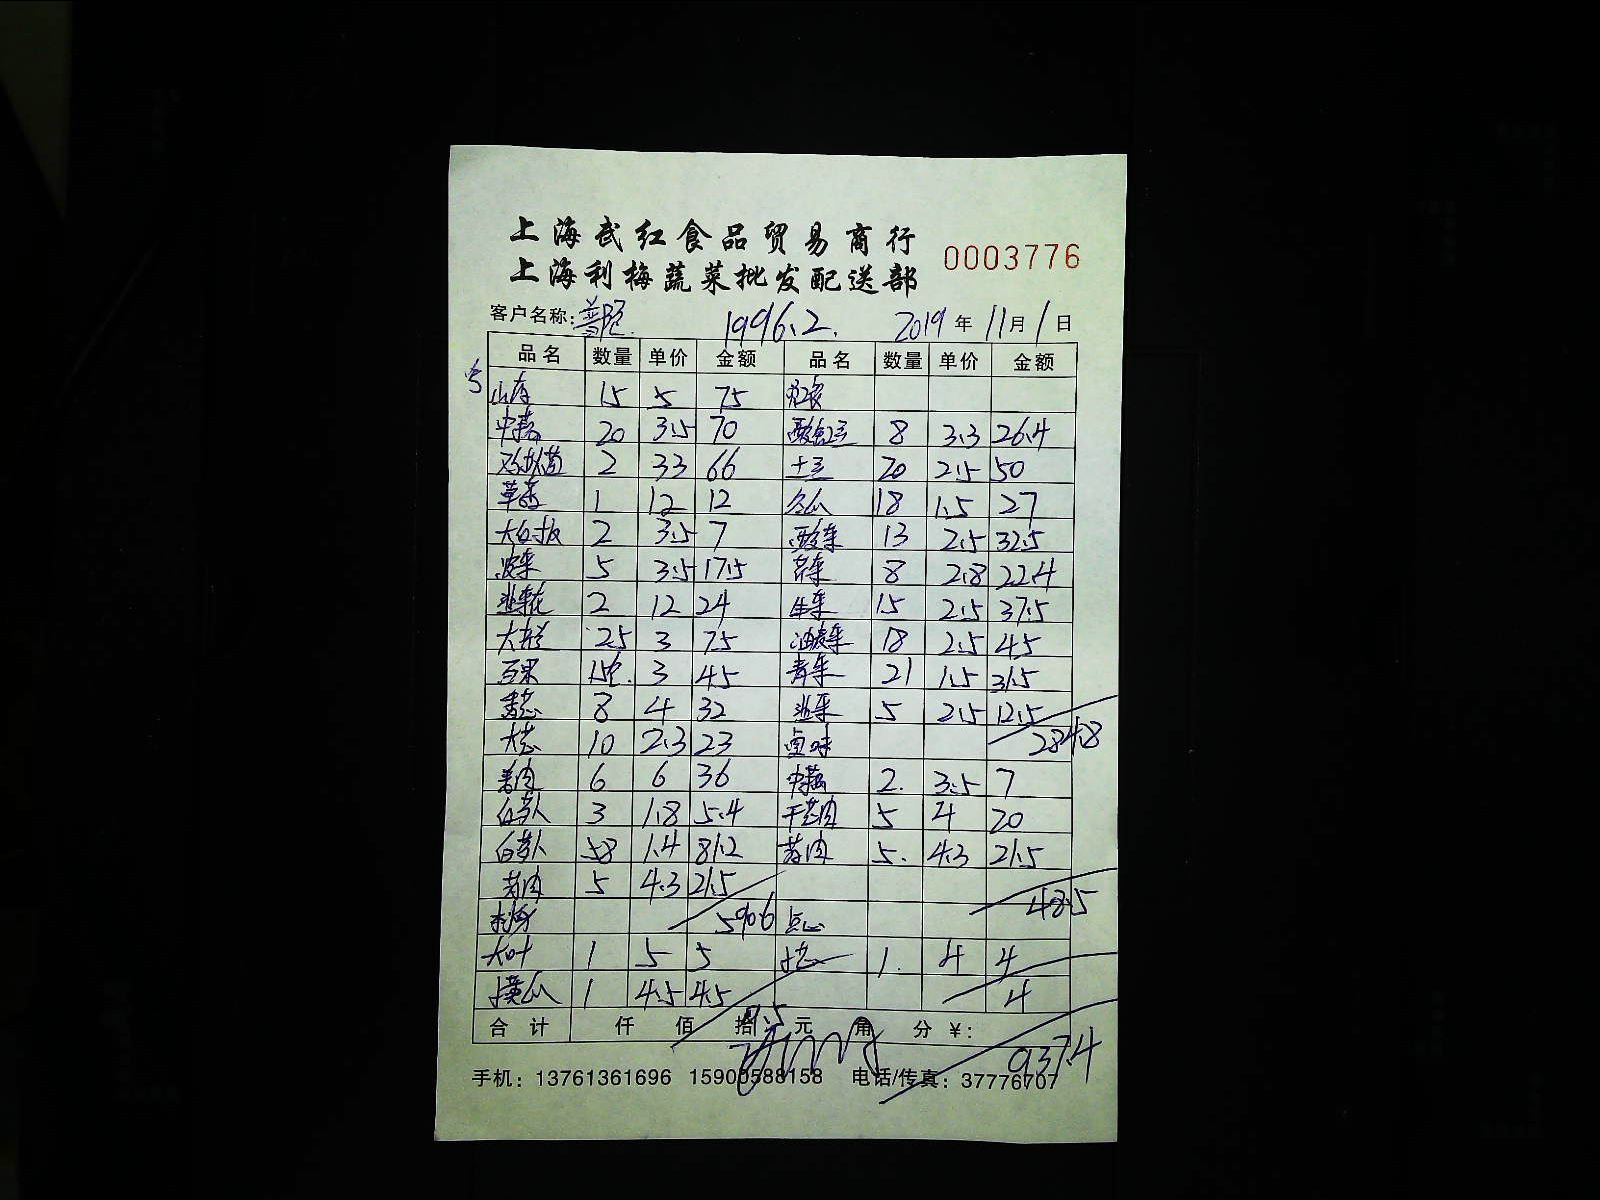 上海武红食品贸易商行
上海利梅蔬菜批发配送部
0003776
客户名称: 1996.2. 2019年11月1日
品名 数量 单价 金额 品名 数量 单价 金额
山药 15 5 75
20 3.5 70 酸豇豆 8 3.3 26.4
2 33 66 土豆 20 2.5 50
草菇 1 12 12 冬瓜 18 1.5 27
2 3.5 7 酸菜 13 2.5 32.5
菠菜 5 3.5 17.5 芹菜 8 2.8 22.4
韭菜花 2 12 24 生菜 15 2.5 37.5
25 3 75 油麦菜 18 2.5 45
百果 15包. 3 45 青菜 21 1.5 31.5
8 4 32 韭菜 5 2.5 12.5
284.8
大葱 10 2.3 23 卤味
姜肉 6 6 36 2. 3.5 7
白萝卜 3 1.8 5.4 5 4 20
白萝卜 58 1.4 81.2 5. 4.3 21.5
5 4.3 21.5
48.5
590.6 点心
大叶 1 5 5 1. 4 4
黄瓜 1 4.5 4.5 4
9.5
合计 仟 佰 拾 元 角 分 ¥:
937.4
手机: 13761361696 15900588158 电话/传真: 37776707